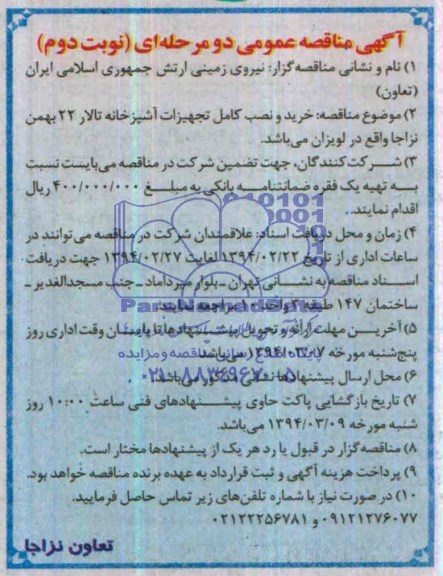 آگهی مناقصه عمومی دو مرحله‌ای (نوبت دوم)
۱) نام و نشانی مناقصه‌گزار: نیروی زمینی ارتش جمهوری اسلامی ایران
(تعاون)
۲) موضوع مناقصه: خرید و نصب کامل تجهیزات آشپزخانه تالار ۲۲ بهمن
نزاجا واقع در لویزان می‌باشد.
۳) شرکت‌کنندگان، جهت تضمین شرکت در مناقصه می‌بایست نسبت
به تهیه یک فقره ضمانتنامه بانکی به مبلغ ۴۰۰/۰۰۰/۰۰۰ ریال
اقدام نمایند.
۴) زمان و محل دریافت اسناد: علاقمندان شرکت در مناقصه می‌توانند در
ساعات اداری از تاریخ ۱۳۹۴/۰۲/۲۲ لغایت ۱۳۹۴/۰۲/۲۷ جهت دریافت
اسناد مناقصه به نشانی تهران ـ بلوار میرداماد ـ جنب مسجدالغدیر ـ
ساختمان ۱۴۷ طبقه واحد مراجعه نمایند.
۵) آخرین مهلت ارائه و تحویل پیشنهادها تا پایان وقت اداری روز
پنج‌شنبه مورخه ۱۳۹۴/۰۳/۰۷ می‌باشد.
۶) محل ارسال پیشنهادها نشانی مذکور می‌باشد.
۷) تاریخ بازگشایی پاکت حاوی پیشنهادهای فنی ساعت ۱۰:۰۰ روز
شنبه مورخه ۱۳۹۴/۰۳/۰۹ می‌باشد.
۸) مناقصه‌گزار در قبول یا رد هر یک از پیشنهادها مختار است.
۹) پرداخت هزینه آگهی و ثبت قرارداد به عهده برنده مناقصه خواهد بود.
۱۰) در صورت نیاز با شماره تلفن‌های زیر تماس حاصل فرمایید.
۰۹۱۲۱۲۷۶۰۷۷ و ۰۲۱۲۲۲۵۶۷۸۱
تعاون نزاجا
ParsNamadData
۰۲۱-۸۸۳۴۹۶۷۰-۵